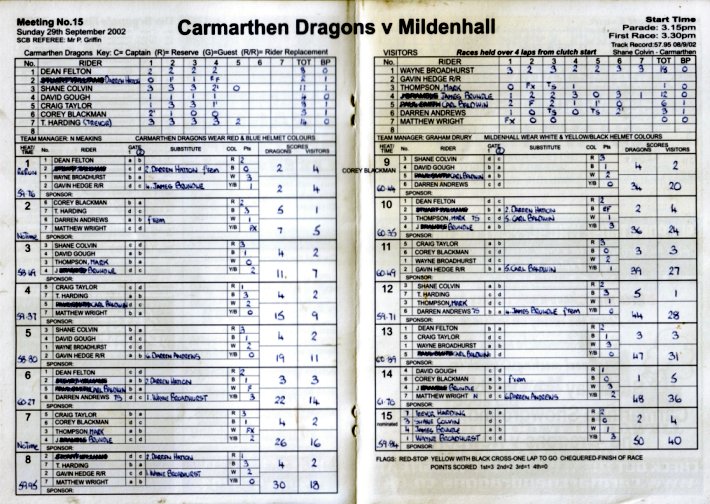 Meeting No.15
Sunday 29th September 2002
SCB REFEREE: Mr P. Griffin
Carmarthen Dragons v Mildenhall
Start Time
Parade: 3.15pm
First Race: 3.30pm
Track Record:57.95 08/9/02
Shane Colvin - Carmarthen
Carmarthen Dragons Key: C= Captain (R)= Reserve (G)=Guest (R/R)= Rider Replacement
No. RIDER 1 2 3 4 5 6 7 TOT BP
1 DEAN FELTON 2 2 2 2 8 0
2 DARREN HATTON
3 SHANE COLVIN 3 3 3 2' 0 11 1
4 DAVID GOUGH
5 CRAIG TAYLOR
6 COREY BLACKMAN
7 T. HARDING (TREVOR) 3 3 3 3 2 14 0
8
TEAM MANAGER: N MEAKINS CARMARTHEN DRAGONS WEAR RED & BLUE HELMET COLOURS
VISITORS Races held over 4 laps from clutch start
No. RIDER 1 2 3 4 5 6 7 TOT BP
1 WAYNE BROADHURST 3 2 3 2 3 2 3 18 0
2 GAVIN HEDGE R/R
3 THOMPSON, MARK 0 FX TS 1 1 0
4 JAMES BRUNDLE 1 2 2 3 0 3 1 12 0
5 CARL BALDWIN
6 DARREN ANDREWS
7 MATTHEW WRIGHT FX 0 0 0 0
8
TEAM MANAGER: GRAHAM DRURY MILDENHALL WEAR WHITE & YELLOW/BLACK HELMET COLOURS
HEAT/TIME No. RIDER GATE SUBSTITUTE COL Pts SCORES DRAGONS VISITORS
1 RERUN 59.76
1 DEAN FELTON a b R 2
2 c d 2 DARREN HATTON B
1 WAYNE BROADHURST W 3
2 GAVIN HEDGE R/R 4 JAMES BRUNDLE Y/B 1
2 4
2 4
SPONSOR:
2 NO TIME
6 COREY BLACKMAN R 2
7 T. HARDING B 3
6 DARREN ANDREWS W 1
7 MATTHEW WRIGHT Y/B FX
5 1
7 5
SPONSOR:
3 58.49
3 SHANE COLVIN R 3
4 DAVID GOUGH B 1
3 THOMPSON, MARK W 0
4 BRUNDLE Y/B 2
4 2
11 7
SPONSOR:
4 59.37
5 CRAIG TAYLOR R 1
7 T. HARDING B 3
5 CARL BALDWIN W 2
7 MATTHEW WRIGHT Y/B 0
4 2
15 9
SPONSOR:
5 58.80
3 SHANE COLVIN R 3
4 DAVID GOUGH B 1
1 WAYNE BROADHURST W 2
2 GAVIN HEDGE R/R 6 DARREN ANDREWS Y/B 0
4 2
19 11
SPONSOR:
6 60.27
1 DEAN FELTON R 2
2 2 DARREN HATTON B 1
5 CARL BALDWIN
6 DARREN ANDREWS TS 1 WAYNE BROADHURST Y/B 3
3 3
22 14
SPONSOR:
7 NO TIME
5 CRAIG TAYLOR R 3
6 COREY BLACKMAN B 1
3 THOMPSON, MARK W FX
4 BRUNDLE Y/B 2
4 2
26 16
SPONSOR:
8 59.95
2 2 DARREN HATTON R 1
7 T. HARDING B 3
2 GAVIN HEDGE R/R 1 WAYNE BROADHURST W 2
7 MATTHEW WRIGHT Y/B 0
4 2
30 18
SPONSOR:
9 COREY BLACKMAN
3 SHANE COLVIN R 3
4 DAVID GOUGH B 1
5 BALDWIN W
6 DARREN ANDREWS Y/B
4 2
34 20
SPONSOR:
10 60.35
1 DEAN FELTON R 2
2 2 DARREN HATTON B EF
3 THOMPSON, MARK TS 5 CARL BALDWIN W 1
4 BRUNDLE Y/B 3
2 4
36 24
SPONSOR:
11 60.49
5 CRAIG TAYLOR R 3
6 COREY BLACKMAN B 0
1 WAYNE BROADHURST W 2
2 GAVIN HEDGE R/R 5 CARL BALDWIN Y/B 1
3 3
39 27
SPONSOR:
12 59.71
3 SHANE COLVIN R 2
7 T. HARDING B 3
3 THOMPSON, MARK W 1
6 DARREN ANDREWS TS 4 JAMES BRUNDLE Y/B 0
5 1
44 28
SPONSOR:
13
1 DEAN FELTON R 2
5 CRAIG TAYLOR B 1
1 WAYNE BROADHURST W 3
5 CARL BALDWIN Y/B 0
3 3
47 31
SPONSOR:
14 61.70
4 DAVID GOUGH R 1
6 COREY BLACKMAN B 0
4 BRUNDLE W 3
7 MATTHEW WRIGHT 6 DARREN ANDREWS Y/B 2
1 5
48 36
SPONSOR:
15 nominated 59.84
7 TREVOR HARDING R 2
3 SHANE COLVIN B 0
4 JAMES BRUNDLE W 1
1 WAYNE BROADHURST Y/B 3
2 4
50 40
SPONSOR:
FLAGS: RED-STOP YELLOW WITH BLACK CROSS-ONE LAP TO GO CHEQUERED-FINISH OF RACE
POINTS SCORED 1st=3 2nd=2 3rd=1 4th=0